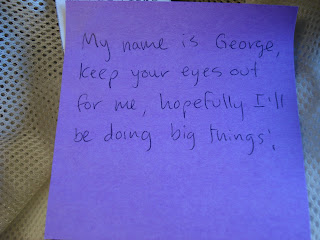 My name is George,
keep your eyes out
for me, hopefully I'll
be doing big things!